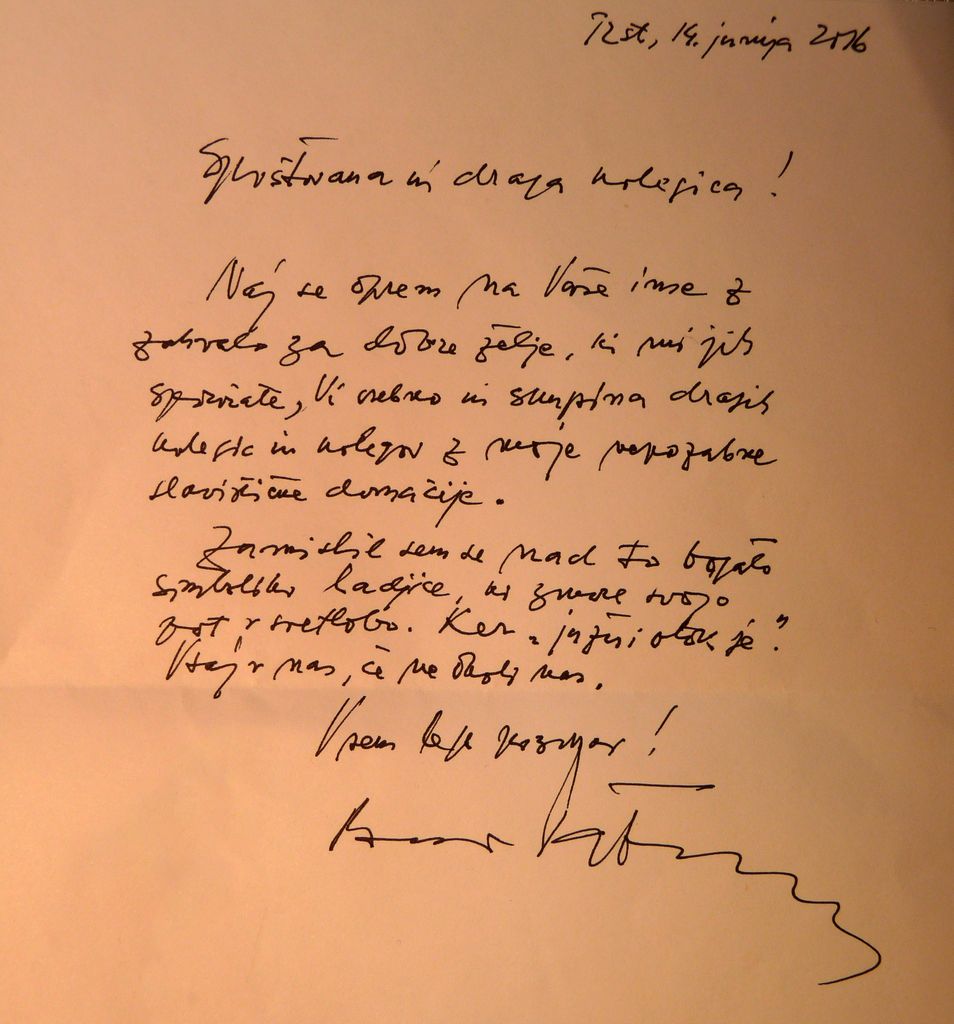 Trst, 14. junija 2016
Spoštovana in draga kolegica!
Naj se oprem na Vaše ime z
zahvalo za dobre želje, ki mi jih
Vi osebno in skupina dragih
kolegic in kolegov z moje nepozabne
slavistične domačije.
Zamislil sem se nad to bogato
simboliko ladjice, ki zmore svojo
pot v svetlobo. Ker „južni otok je”.
Vsaj v nas, če ne okoli nas.
Vsem lep pozdrav!